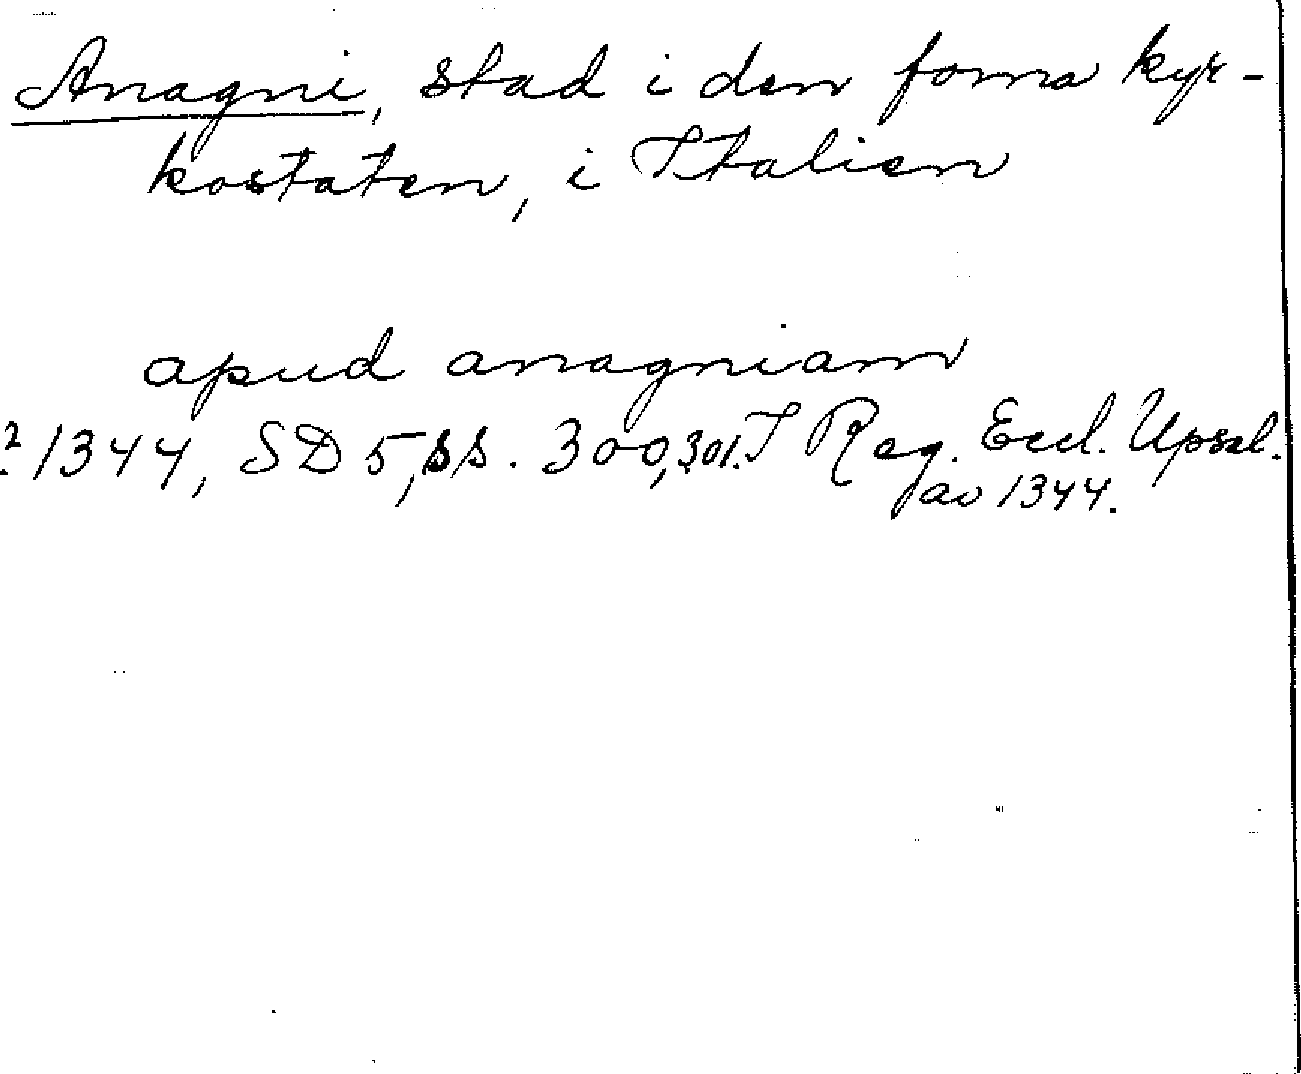 Anagni, stad i den forna kyr-
kostaten, i Italien
apud anagniam
? 1344, SD 5, ss. 300, 301. I Reg. Eccl. Upsal.
av 1344.